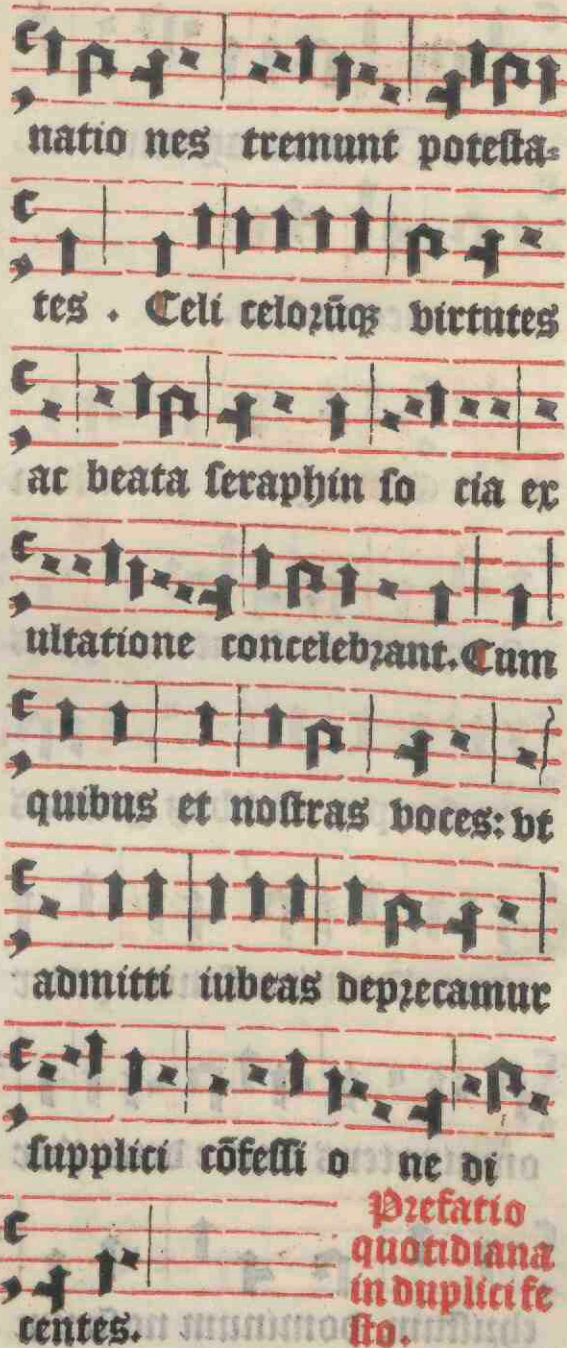 natio nes tremunt potesta⸗
tes . Celi celorūqꝫ virtutes
ac beata seraphin so cia ex
ultatione concelebrant. Cum
quibus et nostras voces: vt
admitti iubeas deprecamur
supplici cōfessi o ne di
centes.
Prefatio
quotidiana
in duplici fe
sto.